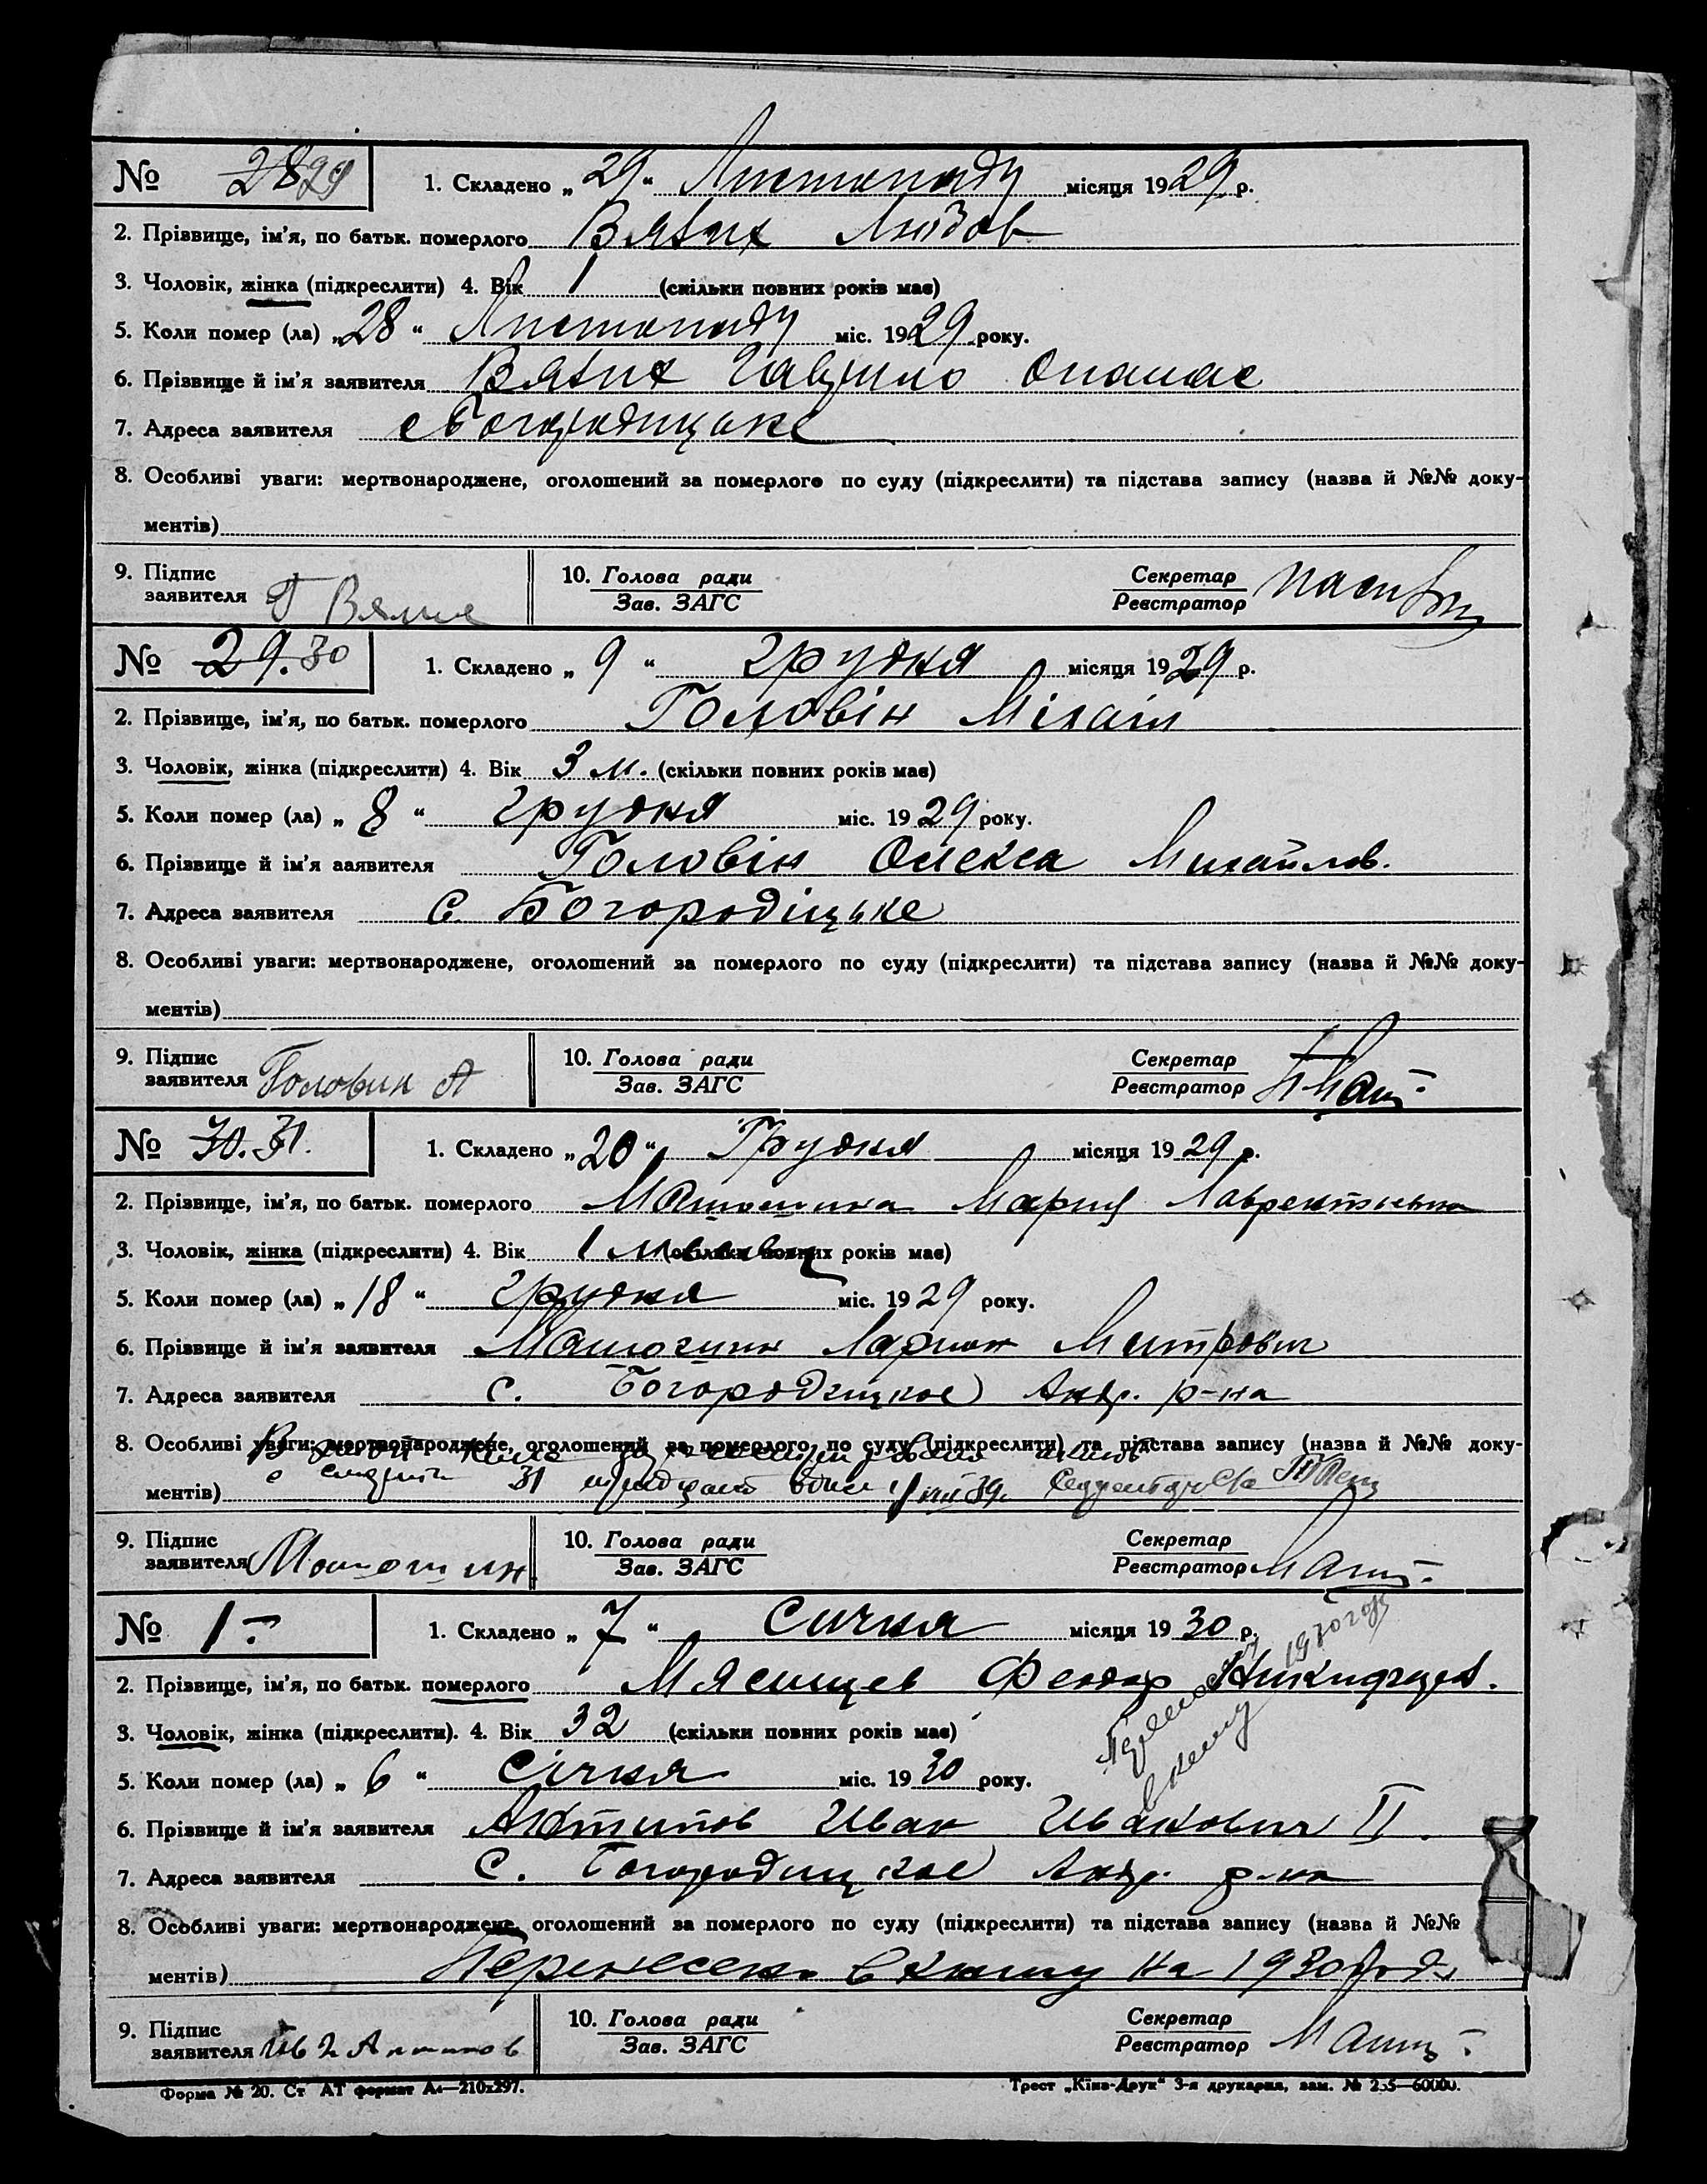 № 28 29 1. Складено „29“ Листопаду місяця 1929 р.
2. Прізвище, ім'я, по батьк. померлого Любов
3. Чоловік, жінка (підкреслити) 4. Вік 1 (скільки повних років має)
5. Коли помер (ла) „28“ Листопаду міс. 1929 року.
6. Прізвище й ім'я заявителя Гаврило Опанас
7. Адреса заявителя с Богородицьке
8. Особливі уваги: мертвонароджене, оголошений за померлого по суду (підкреслити) та підстава запису (назва й №№ доку-
ментів)
9. Підпис заявителя Г 10. Голова ради Зав. ЗАГС Секретар Реєстратор
№ 29. 30 1. Складено „9“ грудня місяця 1929 р.
2. Прізвище, ім'я, по батьк. померлого Головін Міхаіл
3. Чоловік, жінка (підкреслити) 4. Вік 3 м. (скільки повних років має)
5. Коли помер (ла) „8“ грудня міс. 1929 року.
6. Прізвище й ім'я заявителя Головін Олекса Михайлов.
7. Адреса заявителя с. Богородіцьке
8. Особливі уваги: мертвонароджене, оголошений за померлого по суду (підкреслити) та підстава запису (назва й №№ доку-
ментів)
9. Підпис заявителя Головин А 10. Голова ради Зав. ЗАГС Секретар Реєстратор
№ 30. 31. 1. Складено „20“ Грудня місяця 1929 р.
2. Прізвище, ім'я, по батьк. померлого Мария
3. Чоловік, жінка (підкреслити) 4. Вік 1 (скільки повних років має)
5. Коли помер (ла) „18“ грудня міс. 1929 року.
6. Прізвище й ім'я заявителя Ларион Митрович
7. Адреса заявителя с. Богородицкое Андр. р-на
8. Особливі уваги: мертвонароджене, оголошений за померлого по суду (підкреслити) та підстава запису (назва й №№ доку-
В книге актов
ментів) 31 тридцать один
9. Підпис заявителя 10. Голова ради Зав. ЗАГС Секретар Реєстратор
№ 1 1. Складено „7“ Сичня місяця 1930 р.
2. Прізвище, ім'я, по батьк. померлого Мясищев Федор Никифоров.
3. Чоловік, жінка (підкреслити). 4. Вік 32 (скільки повних років має)
5. Коли помер (ла) „6“ Січня міс. 1930 року.
6. Прізвище й ім'я заявителя Антипов Иван Иванович II.
7. Адреса заявителя с. Богородицкое Андр. р-на
8. Особливі уваги: мертвонароджене, оголошений за померлого по суду (підкреслити) та підстава запису (назва й №№
ментів) Перенесено в книгу на 1930 год
9. Підпис заявителя Ив 2й Антипов 10. Голова ради Зав. ЗАГС Секретар Реєстратор
Форма № 20. Ст АТ формат А4—210х297. Трест „Київ-Друк“ 3-я друкарня, зам. № 255—60000.